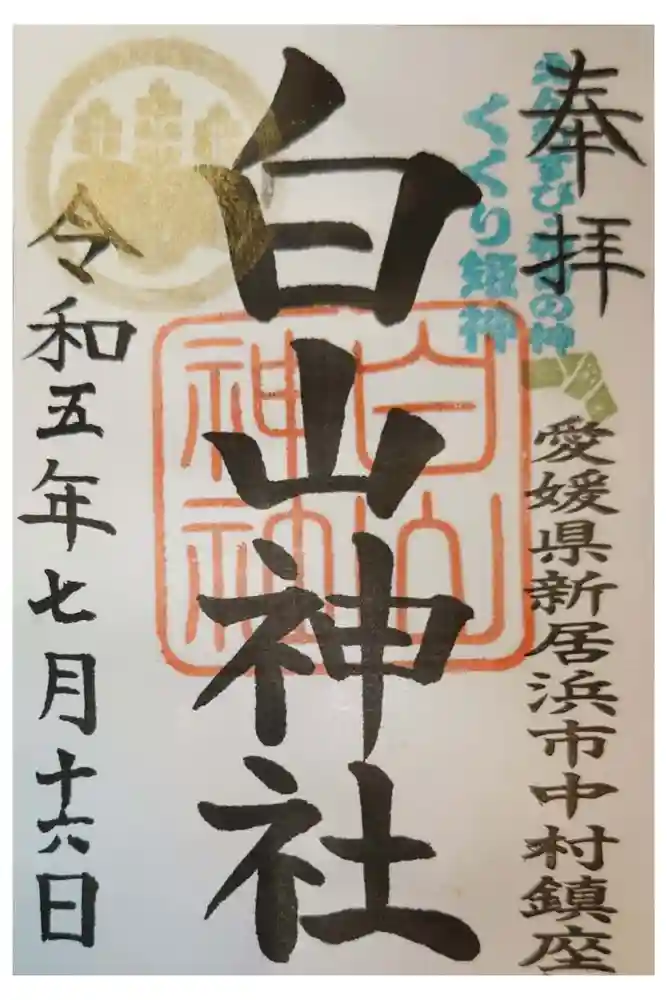 奉拝
愛媛県新居浜市中村鎮座
くくり姫神
白山神社
白山
神社
令和五年七月十六日